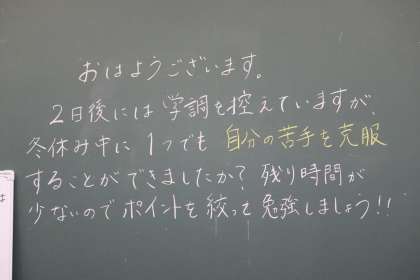 おはようございます。
2日後には学調を控えていますが、
冬休み中に1つでも自分の苦手を克服
することができましたか？残り時間が
少ないのでポイントを絞って勉強しましょう!!
は